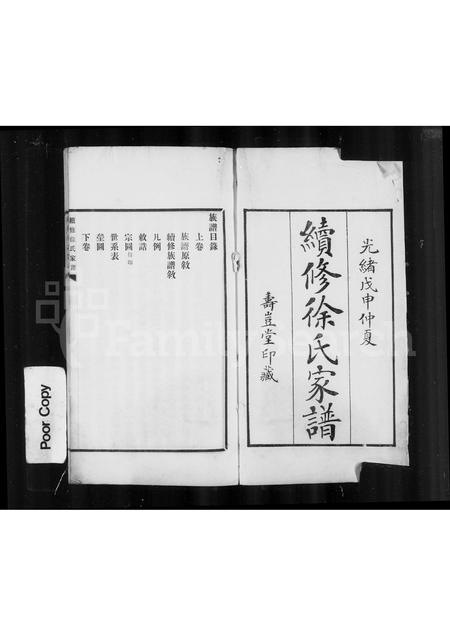 光緒戊申仲夏
續修徐氏家譜
壽豈堂印藏
族譜目錄
上卷
族譜原敘
續修族譜敘
凡例
敕誥
宗圖
世系表
塋圖
下卷
續修徐氏家譜
Poor Copy
FamilySearch